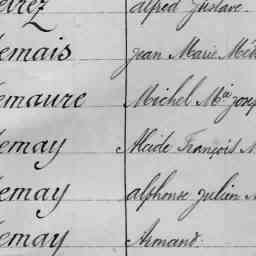 evrez alfred Gustave
emais Jean Marie Mé
emaure Michel Mie Josep
emay Alcide François M
emay alphonse Julien
emay Armand.